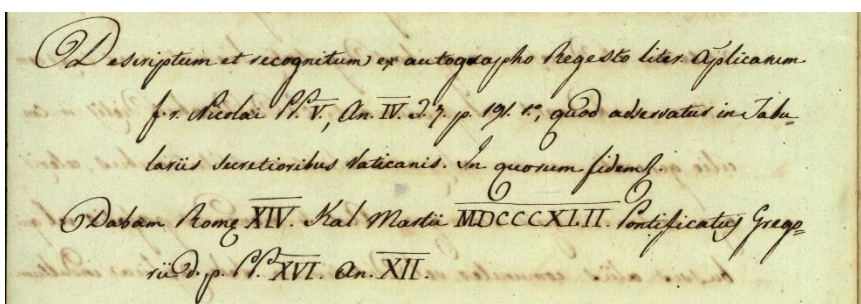 Descriptum et recognitum ex autographo Regesto liter. Aplicarum
f. r. Nicolai PP. V, An. IV. T. 7. p. 191. t.º, quod adservatur in Tabu=
lariis secretioribus Vaticanis. In quorum fidem
Dabam Romę XIV. Kal Martii MDCCCXLII. Pontificatus Grego=
rii d. p. PP. XVI. An. XII.